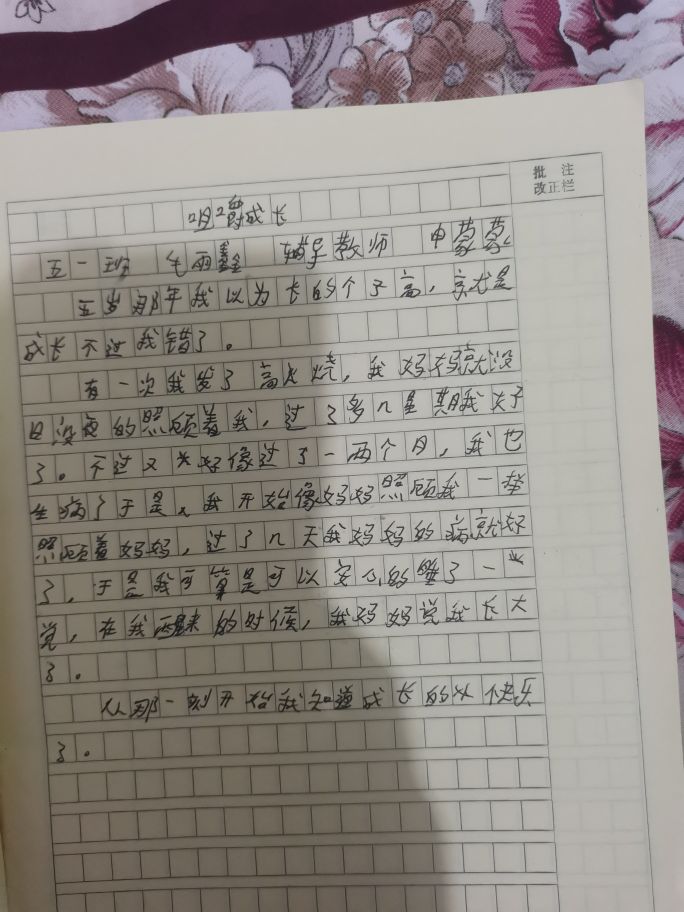 批 注
改正栏
成长
五一班 毛雨鑫 辅导教师 申蒙蒙
五岁那年我以为长的个子高，京尤是
成长不过我错了。
有一次我发了高火烧，我妈妈京尤没
日没夜的照顾着我，过了多几星期我好
了。不过又好像过了一两个月，我也
生病了于是，我开始像妈妈照顾我一样
照顾着妈妈，过了几天我妈妈的病京尤好
了，于是我可算是可以安心的睡了一
觉，在我醒来的时候，我妈妈说我长大
了。
从那一刻开始我知道成长的快乐
了。